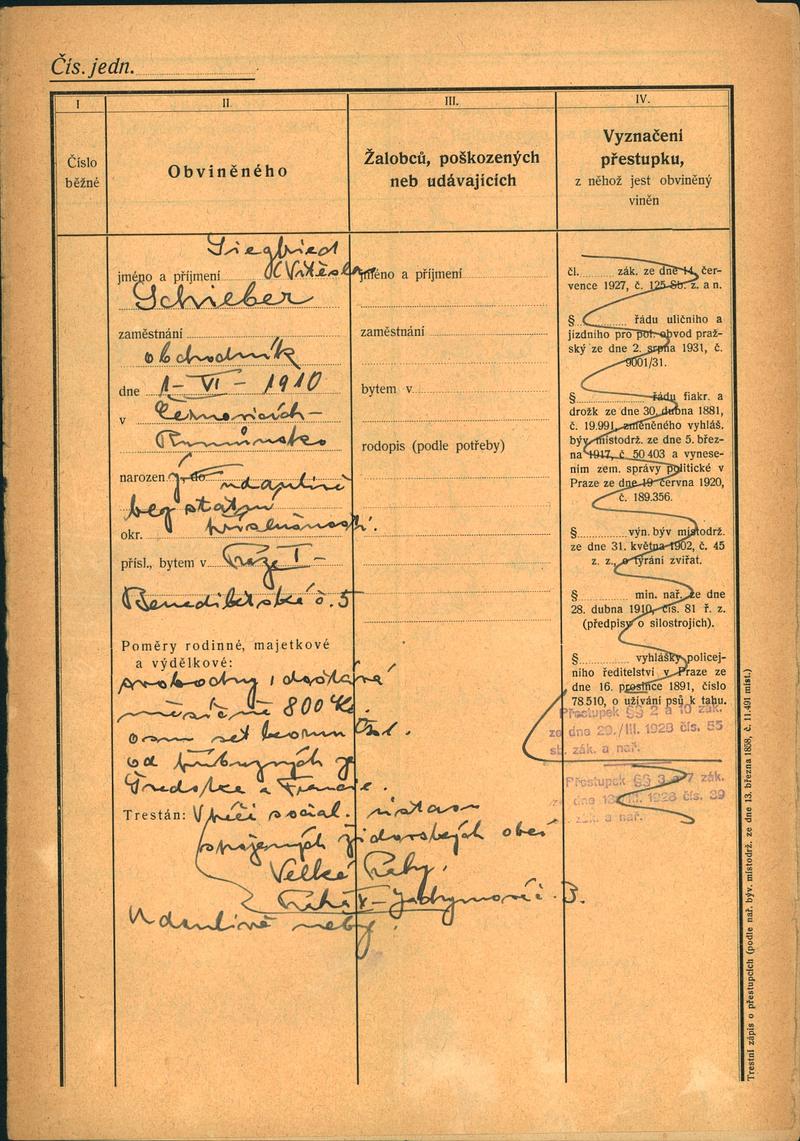 Čís. jedn.
I
II.
III.
IV.
Číslo
běžné
Obviněného
Žalobců, poškozených
neb udávajících
Vyznačení
přestupku,
z něhož jest obviněný
viněn
Siegfried
jméno a příjmení (Vítěslav
Schieber
zaměstnání
obchodník
dne 1 - VI - 1910
v Černovicích -
Rumunsko
narozen údanlivě
bez státní
okr. příslušnosti.
přísl., bytem v Praze I -
Benediktská č. 5
Poměry rodinné, majetkové
a výdělkové:
svobodný, dostává
měsíčně 800 Kč.
osm set korun čsl.
od příbuzných ze
Švédska a Francie.
Trestán: V péči social. ústavu
spojených židovských obcí
Velké Prahy,
Praha V - Jáchymova č. 3.
Údanlivě neby.
jméno a příjmení
zaměstnání
bytem v
rodopis (podle potřeby)
čl. zák. ze dne 14. čer-
vence 1927, č. 125 Sb. z. a n.
§ řádu uličního a
jízdního pro pol. obvod praž-
ský ze dne 2. srpna 1931, č.
9001/31.
§ řádu fiakr. a
drožk ze dne 30. dubna 1881,
č. 19.991, změněného vyhláš.
býv. místodrž. ze dne 5. břez-
na 1917, č. 50 403 a vynese-
ním zem. správy politické v
Praze ze dne 19 června 1920,
č. 189.356.
§ výn. býv místodrž.
ze dne 31. května 1902, č. 45
z. z., o týrání zvířat.
§ min. nař. ze dne
28. dubna 1910, čís. 81 ř. z.
(předpisy o silostrojích).
§ vyhlášky policej-
ního ředitelství v Praze ze
dne 16. prosince 1891, číslo
78510, o užívání psů k tahu.
Přestupek §§ 2 a 10 zák.
ze dne 29./III. 1928 čís. 55
sb. zák. a nař.
Přestupek §§ 3 a 7 zák.
1928 čís. 39
zák. a nař.
Trestní zápis o přestupcích (podle nař. býv. místodrž. ze dne 13. března 1858, č. 11.491 míst.)